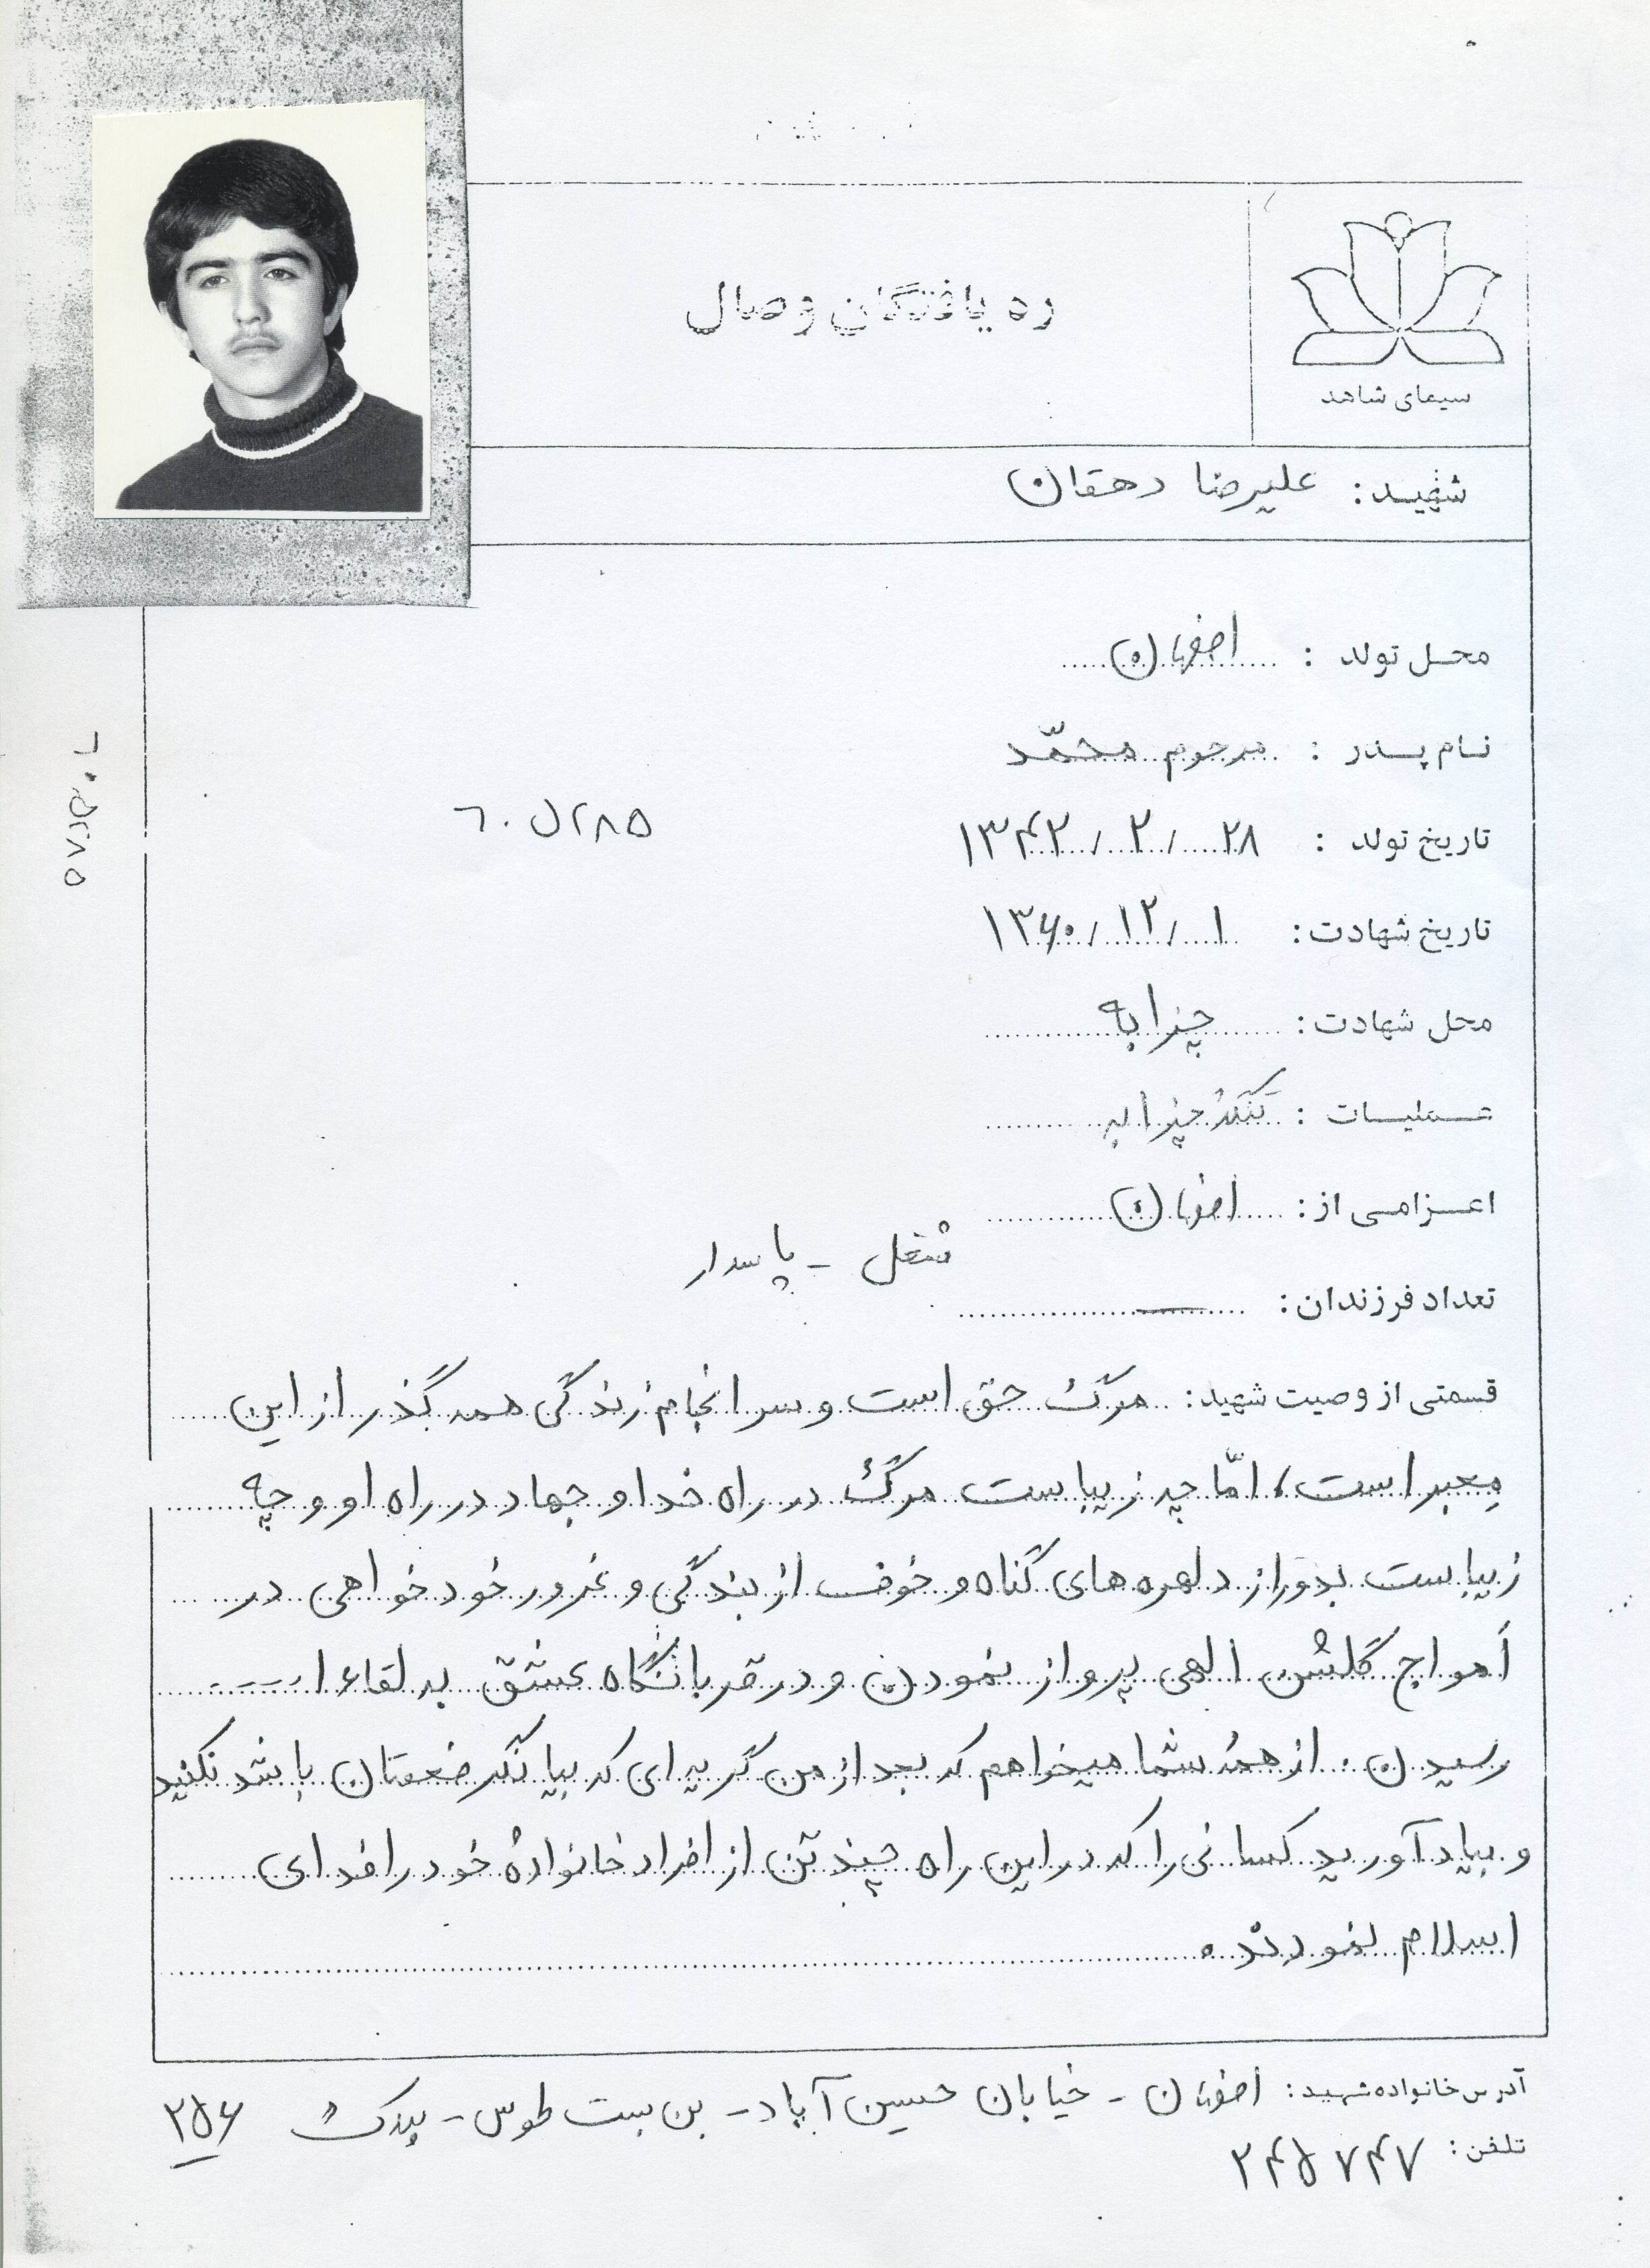 ره یافتگان وصال
سیمای شاهد
شهید: علیرضا دهقان
محل تولد : اصفهان
نام پدر : مرحوم محمّد
تاریخ تولد : ۲۸ / ۲ / ۱۳۴۲
۶۰ل۲۸۵
تاریخ شهادت: ۱ / ۱۲ / ۱۳۶۰
محل شهادت: چزابه
عملیات : تنگهٔ چزابه
اعزامی از: اصفهان
شغل - پاسدار
تعداد فرزندان: —
قسمتی از وصیت شهید: مرگ حق است و سرانجام زندگی همه گذر از این
معبر است، امّا چه زیباست مرگ در راه خدا و جهاد در راه او و چه
زیباست بدور از دلهره های گناه و خوف از بندگی و غرور خودخواهی در
أمواج گلشن الهی پرواز نمودن و در قربانگاه عشق به لقاء ا...
رسیدن. از همهٔ شما میخواهم که بعد از من گریه ای که بیانگر ضعفتان باشد نکنید
و بیاد آورید کسانی را که در این راه چند تن از افراد خانوادهٔ خود را فدای
اسلام نمودند.
آدرس خانواده شهید: اصفهان - خیابان حسین آباد - بن بست طوس - پلاک ۲۵۶
تلفن: ۲۴۵۷۴۷